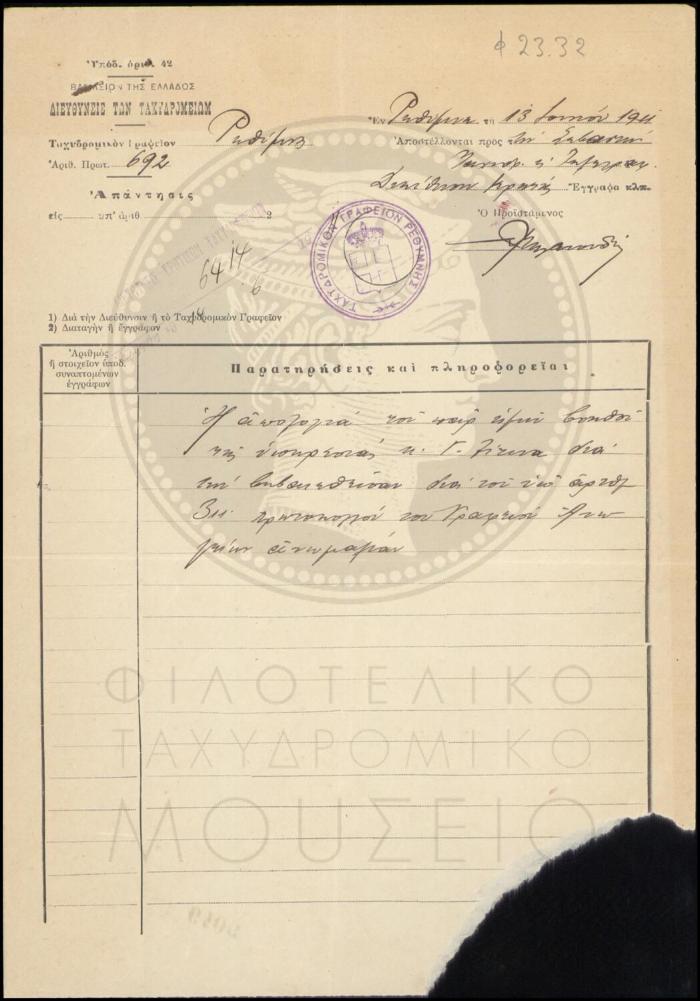 φ 23.32
Ὑπόδ. ἀριθ. 42
ΒΑΣΙΛΕΙΟΝ ΤΗΣ ΕΛΛΑΔΟΣ
ΔΙΕΥΘΥΝΣΙΣ ΤΩΝ ΤΑΧΥΔΡΟΜΕΙΩΝ
Ταχυδρομικὸν Γραφεῖον Ρεθύμνης
Ἀριθ. Πρωτ. 692
Ἀπάντησις
εἰς ὑπ' ἀριθ. 2
Ἐν Ρεθύμνῃ τῇ 13 Ἰουνίου 1911
Ἀποστέλλονται πρὸς τὴν Σεβαστὴν
Διεύθυνσιν Κρήτης Ἔγγραφα κλπ.
Ὁ Προϊστάμενος
ΤΑΧΥΔΡΟΜΙΚΟΝ ΓΡΑΦΕΙΟΝ ΡΕΘΥΜΝΗΣ
64 14
6
1) Διὰ τὴν Διεύθυνσιν ἢ τὸ Ταχυδρομικὸν Γραφεῖον
2) Διαταγὴν ἢ ἔγγραφον
Ἀριθμὸς
ἢ στοιχεῖον ὑποδ.
συναπτομένων
ἐγγράφων
Παρατηρήσεις καὶ πληροφορεῖαι
Ἡ ἀπολογία τοῦ παρ' ἡμῖν βοηθοῦ
τῆς ὑπηρεσίας κ. Γ.
τὴν διὰ τοῦ ὑπ' ἀριθ
311 πρωτοκόλου τοῦ Γραφείου Ἀνω
γείων ἀνωμαλίαν
ΦΙΛΟΤΕΛΙΚΟ
ΤΑΧΥΔΡΟΜΙΚΟ
ΜΟΥΣΕΙΟ